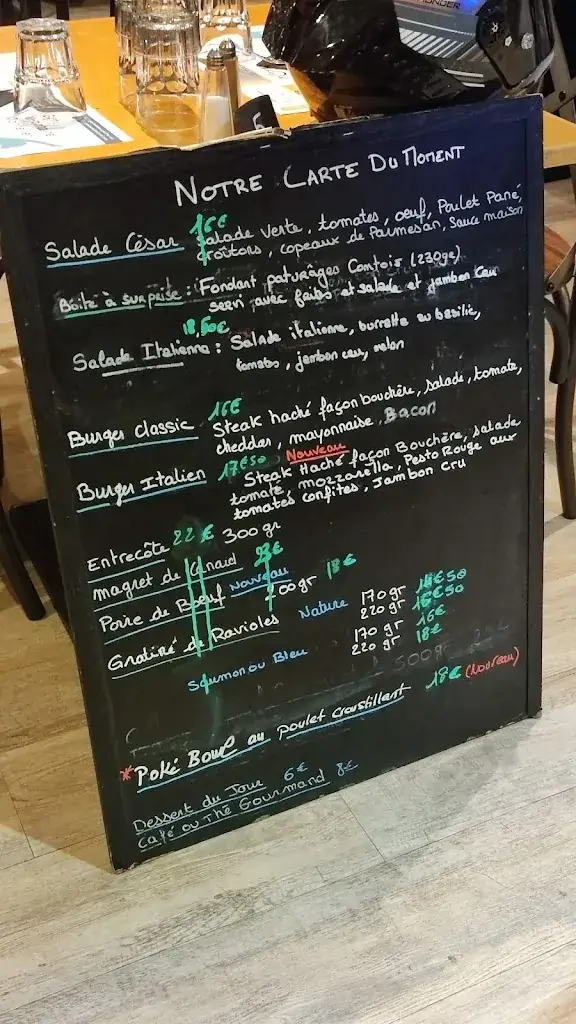 NOTRE CARTE DU MOMENT
16€
Salade César Salade verte, tomates, oeuf, Poulet Pané,
croîtons, copeaux de Parmesan, Sauce maison
Boite à surprise : Fondant paturâges Comtois (230gr)
servi avec frites et salade et jambon cru
18,50€
Salade Italienne : Salade italienne, burratta au basilic,
tomates, jambon cru, melon
Burger classic 16€ Steak haché façon bouchère, salade, tomate,
chedder, mayonnaise, Bacon
Nouveau
Burger Italien 17€50 Steak Haché façon Bouchère, salade
tomate mozzarella, Pesto Rouge aux
tomates confites, Jambon cru
Entrecôte 22€ 300gr
magret de Canard 23€
Poire de Bœuf Nouveau 200gr 18€
Gratiné de Ravioles Nature 170gr 50
220gr 50
Saumon ou Bleu 170gr 16€
220gr 18€
500gr
*Poké Bowl au poulet croustillant 18€ (Nouveau)
Dessert du Jour 6€
Café ou Thé Gourmand 8€